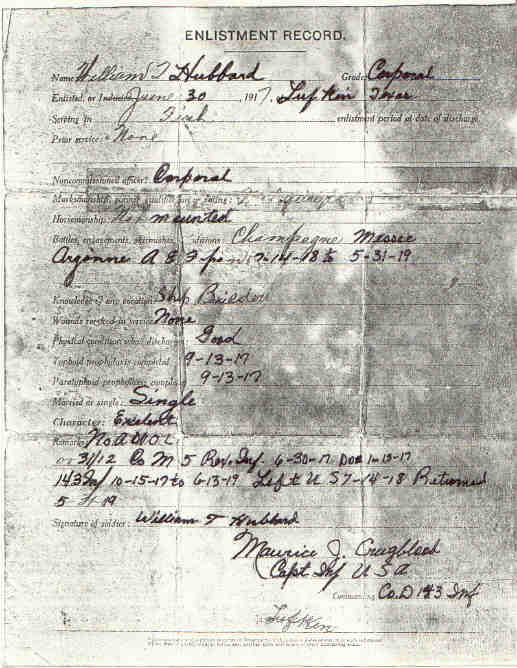 ENLISTMENT RECORD.
Name: William T Hubbard Grade: Corporal
Enlisted, or Inducted, June 30 1917, Lufkin Texas
Serving in First enlistment period at date of discharge
Prior service: None
Noncommissioned officer: Corporal
Marksmanship, gunner qualification or rating:
Horsemanship: Not mounted
Battles, engagements, skirmishes, expeditions: Champagne Messee
Argonne A E F from 7-14-18 to 5-31-19
Knowledge of any vocation: Ship Builder
Wounds received in service: None
Physical condition when discharged: Good
Typhoid prophylaxis completed 9-13-17
Paratyphoid prophylaxis completed 9-13-17
Married or single: Single
Character: Exelent
Remarks: No AWOL
31/12 Co M 5 Inf. 6-30-17
143 Inf 10-15-17 to 6-13-19 Left U S 7-14-18 Returned
5 31 19
Signature of soldier: William T Hubbard
Maurice J.
Capt Inf U S A
Commanding Co. D 143 Inf
Lufkin